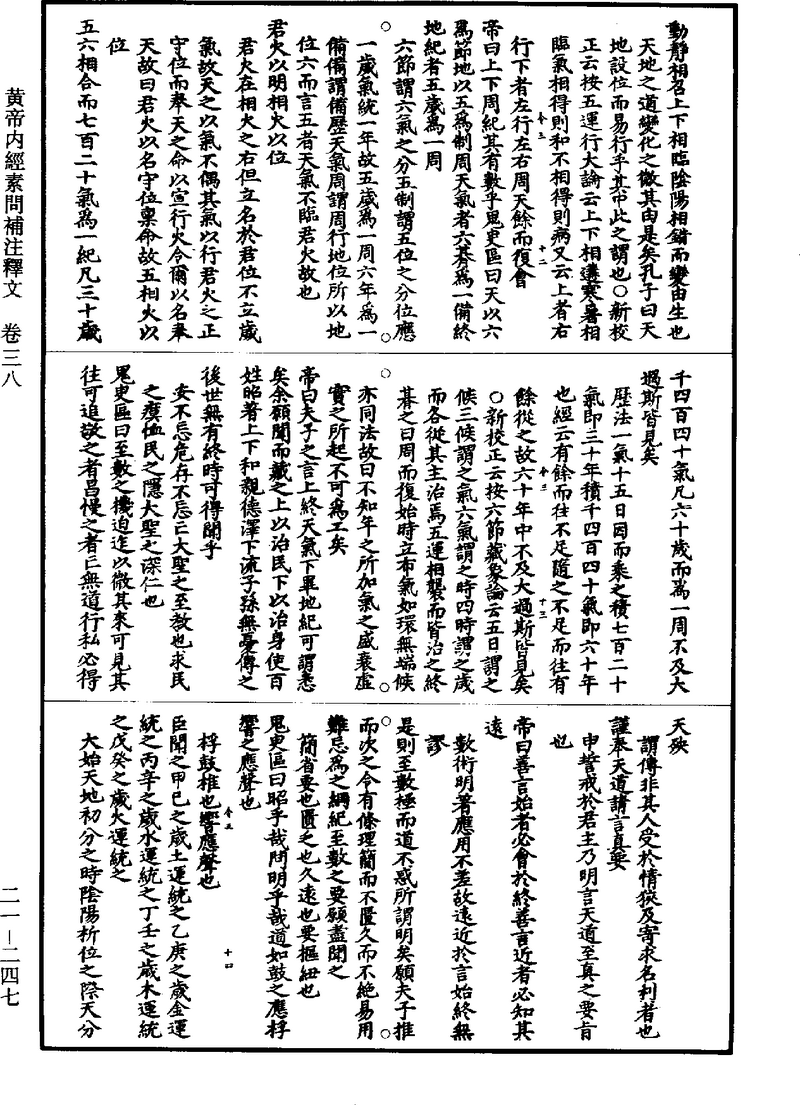 黃帝內經素問補注釋文　卷三八
二一—二四七
動靜相召上下相臨陰陽相錯而變由生也
天地之道變化之微其由是矣孔子曰天
地設位而易行乎其中此之謂也○新校
正云按五運行大論云上下相遘寒暑相
臨氣相得則和不相得則病又云上者右
行下者左行左右周天餘而復會
卷三
十二
帝曰上下周紀其有數乎鬼臾區曰天以六
爲節地以五爲制周天氣者六朞爲一備終
地紀者五歲爲一周
六節謂六氣之分五制謂五位之分位應
一歲氣統一年故五歲爲一周六年爲一
備備謂備歷天氣周謂周行地位所以地
位六而言五者天氣不臨君火故也
君火以明相火以位
君火在相火之右但立名於君位不立歲
氣故天之以氣不偶其氣以行君火之正
守位而奉天之命以宣行火令爾以名奉
天故曰君火以名守位稟命故五相火以
位
五六相合而七百二十氣爲一紀凡三十歲
千四百四十氣凡六十歲而爲一周不及太
過斯皆見矣
歷法一氣十五日因而乘之積七百二十
氣即三十年積千四百四十氣即六十年
也經云有餘而往不足隨之不足而往有
餘從之故六十年中不及大過斯皆見矣
卷三
十三
○新校正云按六節藏象論云五日謂之
候三候謂之氣六氣謂之時四時謂之歲
而各從其主治焉五運相襲而皆治之終
朞之日周而復始時立布氣如環無端候
亦同法故曰不知年之所加氣之盛衰虛
實之所起不可爲工矣
帝曰夫子之言上終天氣下畢地紀可謂悉
矣余願聞而藏之上以治民下以治身使百
姓昭著上下和親德澤下流子孫無憂傳之
後世無有終時可得聞乎
安不忘危存不忘亡大聖之至教也求民
之瘼恤民之隱大聖之深仁也
鬼臾區曰至數之機迫迮以微其來可見其
往可追敬之者昌慢之者亡無道行私必得
天殃
謂傳非其人受於情狹及寄求名利者也
謹奉天道請言真要
申誓戒於君主乃明言天道至真之要旨
也
帝曰善言始者必會於終善言近者必知其
遠
數術明著應用不差故遠近於言始終無
謬
是則至數極而道不惑所謂明矣願夫子推
而次之令有條理簡而不匱久而不絕易用
難忘爲之綱紀至數之要願盡聞之
簡省要也匱乏也久遠也要樞紐也
鬼臾區曰昭乎哉問明乎哉道如鼓之應桴
響之應聲也
桴鼓椎也響應聲也
卷三
十四
臣聞之甲己之歲土運統之乙庚之歲金運
統之丙辛之歲水運統之丁壬之歲木運統
之戊癸之歲火運統之
大始天地初分之時陰陽析位之際天分